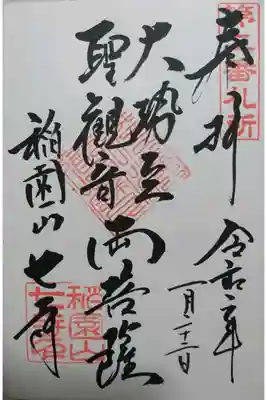 奉拝
令和二年
一月二十二日
大勢至
聖観音
両菩薩
稲園山 七寺
稲園山
七寺印